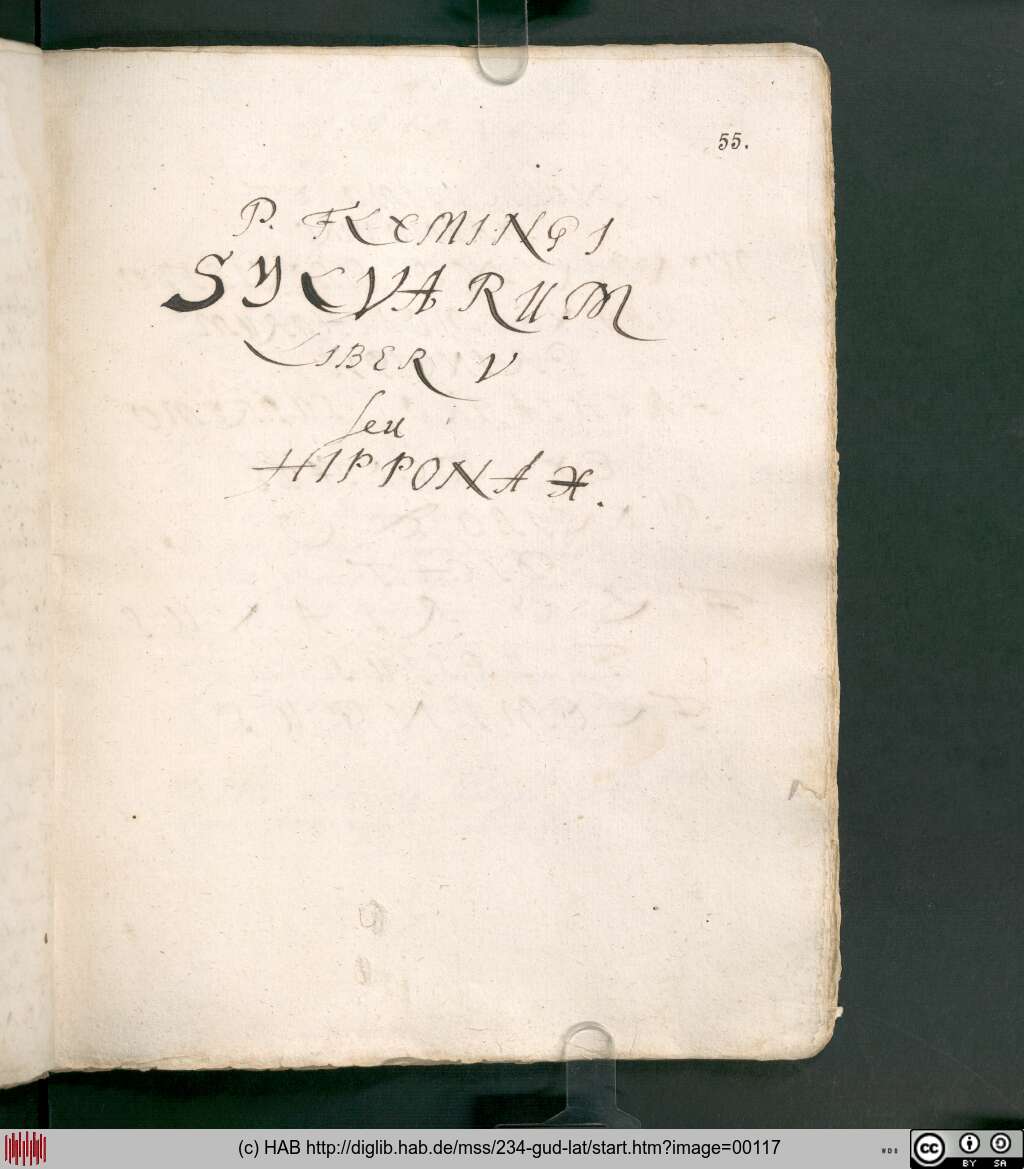 55.
P. FLEMINGI
SYLVARUM
LIBER V
seu
HIPPONAX.
(c) HAB http://diglib.hab.de/mss/234-gud-lat/start.htm?image=00117
cc BY SA